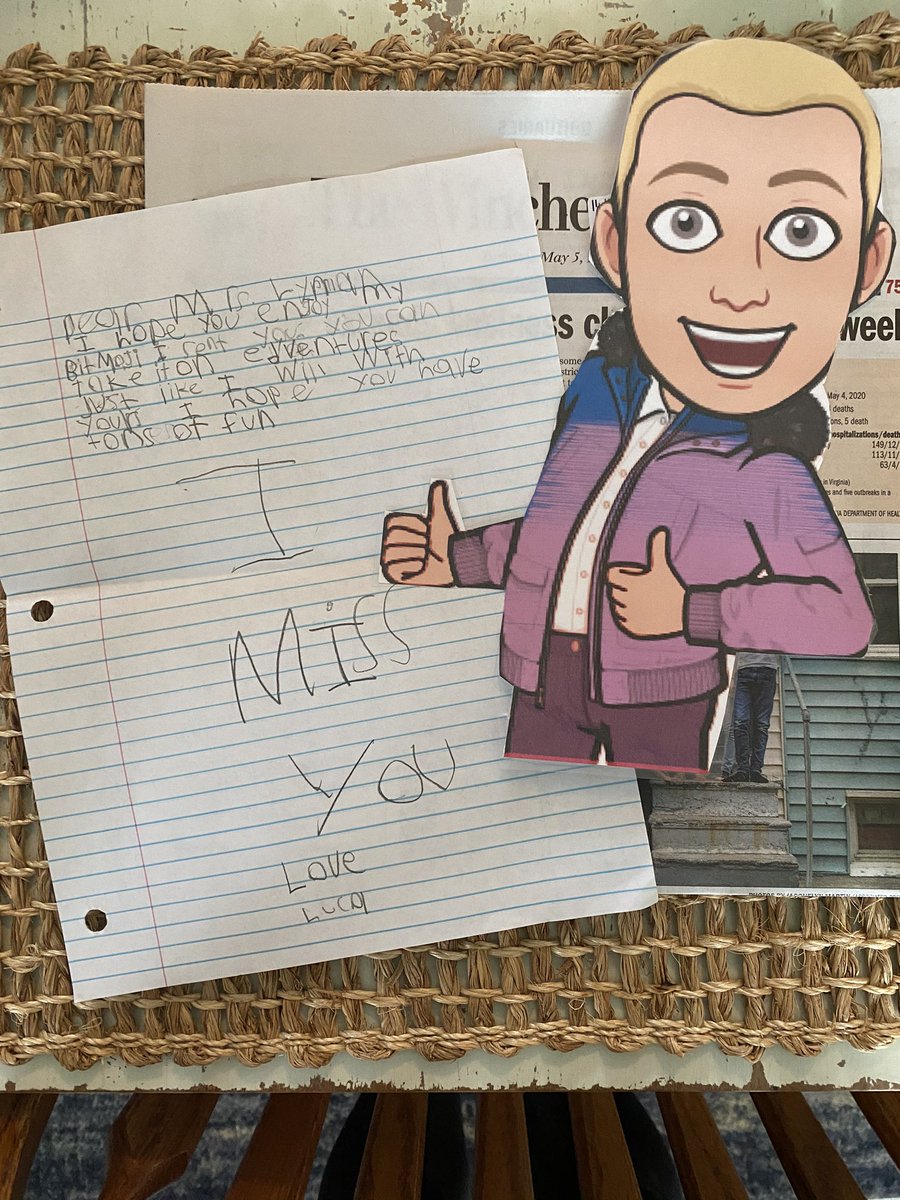 Dear Mrs. Lyman
I hope you enjoy my
BitMoji I sent you you can
take it on edventures
Just like I will with
yours I hope you have
tons of fun
I
Miss
You
Love
Luca
che
May 5,
75
ss cl week
some
May 4, 2020
deaths
ons, 5 death
hospitalizations/death
149/12/
113/11/
63/4/
in Virginia)
es and five outbreaks in a
IA DEPARTMENT OF HEAL
PHOTOS BY JACQUELYN MARTIN